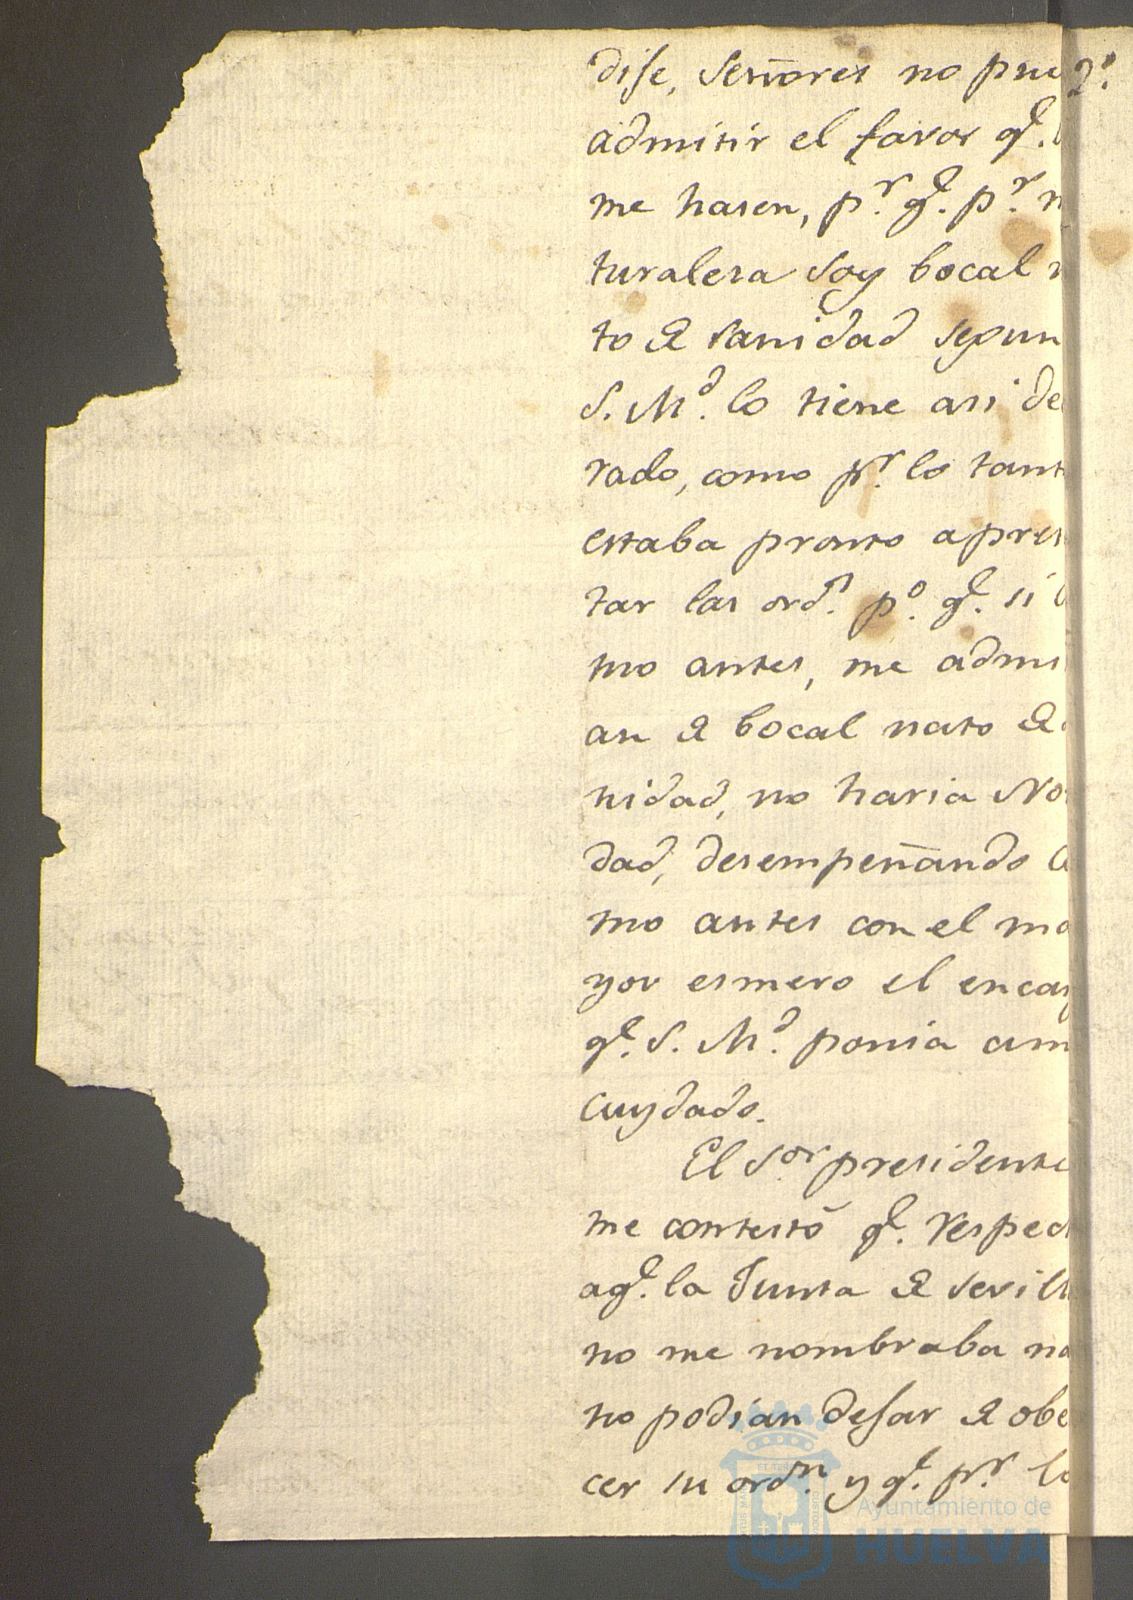 dise, Señores no pue
2º.
admitir el favor q.e
me hasen, p.r q.e p.r n
turalesa soy bocal n
to de sanidad segun
S. M.d lo tiene asi de
rado, como p.r lo tant
estaba pronto apres
tar las ord.s p.o q.e si
mo antes, me admi
an de bocal nato de
nidad, no haria No
dad, desempeñando
mo antes con el ma
yor esmero el encar
q.e S. M.d ponia am
cuydado.
El S.or presidente
me contestó q.e respec
aq.e la Junta de Sevill
no me nombraba na
no podian desar de obe
cer su ord.n y q.e p.r lo
Ayuntamiento de
HUELVA